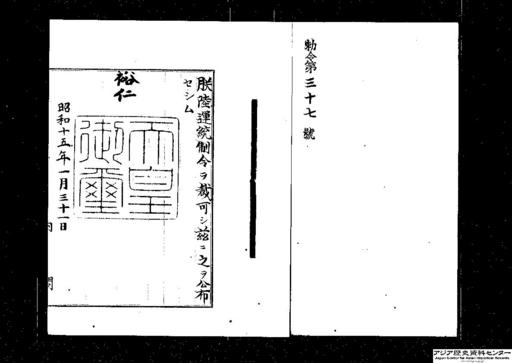 勅令第三十七號
朕陸運統制令ヲ裁可シ茲ニ之ヲ公布
セシム
裕仁
天皇
御璽
昭和十五年一月三十一日
内閣
アジア歴史資料センター
Japan Center for Asian Historical Records